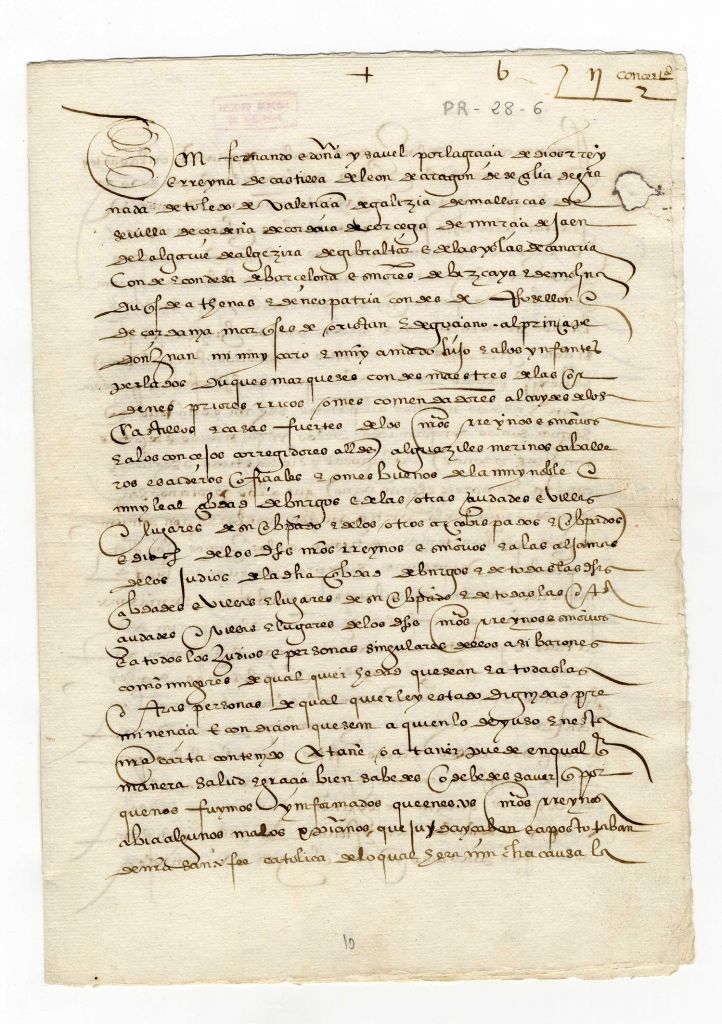 + 6 concertdo
PR - 28 - 6
Don fernando e doña ysavel por la gracia de dios rrey
e rreyna de castilla de leon de aragon de seçilia de gra
nada de toledo de valençia de galizia de mallorcas de
sevilla de cerdeña de cordova de corcega de murçia de jaen
del algarve de algezira de gibraltar e de las yslas de canaria
conde e condesa de barcelona e señores de bizcaya e de molina
duqs de athenas e de neopatria condes de Rosellon e
de cerdania marqses de oristan e de goçiano al prinçipe
don Juan mi muy caro e muy amado hijo e a los ynfantes
perlados duques marqueses condes maestres de las or
denes priores rricos omes comendadores alcaydes de los
castillos e casas fuertes de los nros rreynos e señorios
e a los concejos corregidores allds alguaziles merinos cavalle
ros escuderos ofiçiales e omes buenos de la muy noble e
muy leal çibdad de burgos e de las otras çiudades e villas
e lugares de su obpado e de los otros arçobispados e obpados
e dioçs de los dhs nros rreynos e señorios e a las aljamas
de los judios de la dha çibdad de burgos e de todas las dhas
çibdades e villas e lugares de su obpado e de todas las otras
çiudades e villas e lugares de los dhs nros rreynos e señorios
e a todos los Judios e personas singulares dellos asi barones
como mugeres de qual quier hedad que sean e a todas las
otras personas de qual quier ley estado dignidad pre
minençia e condiçion que sean a quien lo de yuso en esta
nra carta contenydo atane o ataner puede en qual qer
manera salud e graçia bien sabedes o debedes saver q por
que nos fuymos ynformados que en estos nros rreynos
abia algunos malos xpianos que judayçaban e apostotaban
de nra santa fee catolica de lo qual hera mucha causa la
10